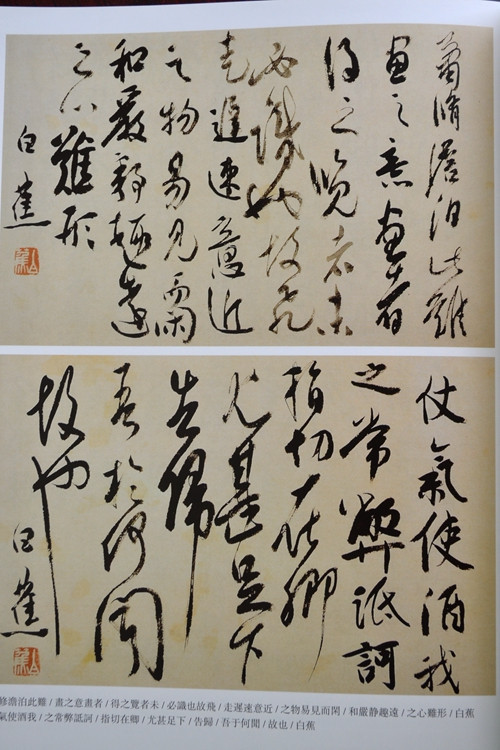 蕭脩澹泊此難
畫之意畫者
得之覽者未
必識也故飛
走遲速意近
之物易見而閑
和嚴靜趣遠
之心難形
白蕉
仗氣使酒我
之常弊詆訶
指切在卿
尤甚足下
告歸
吾於何聞
故也
白蕉
修澹泊此難 / 畫之意畫者 / 得之覽者未 / 必識也故飛 / 走遲速意近 / 之物易見而閑 / 和嚴静趣遠 / 之心難形 / 白蕉
氣使酒我 / 之常弊詆訶 / 指切在卿 / 尤甚足下 / 告歸 / 吾于何聞 / 故也 / 白蕉